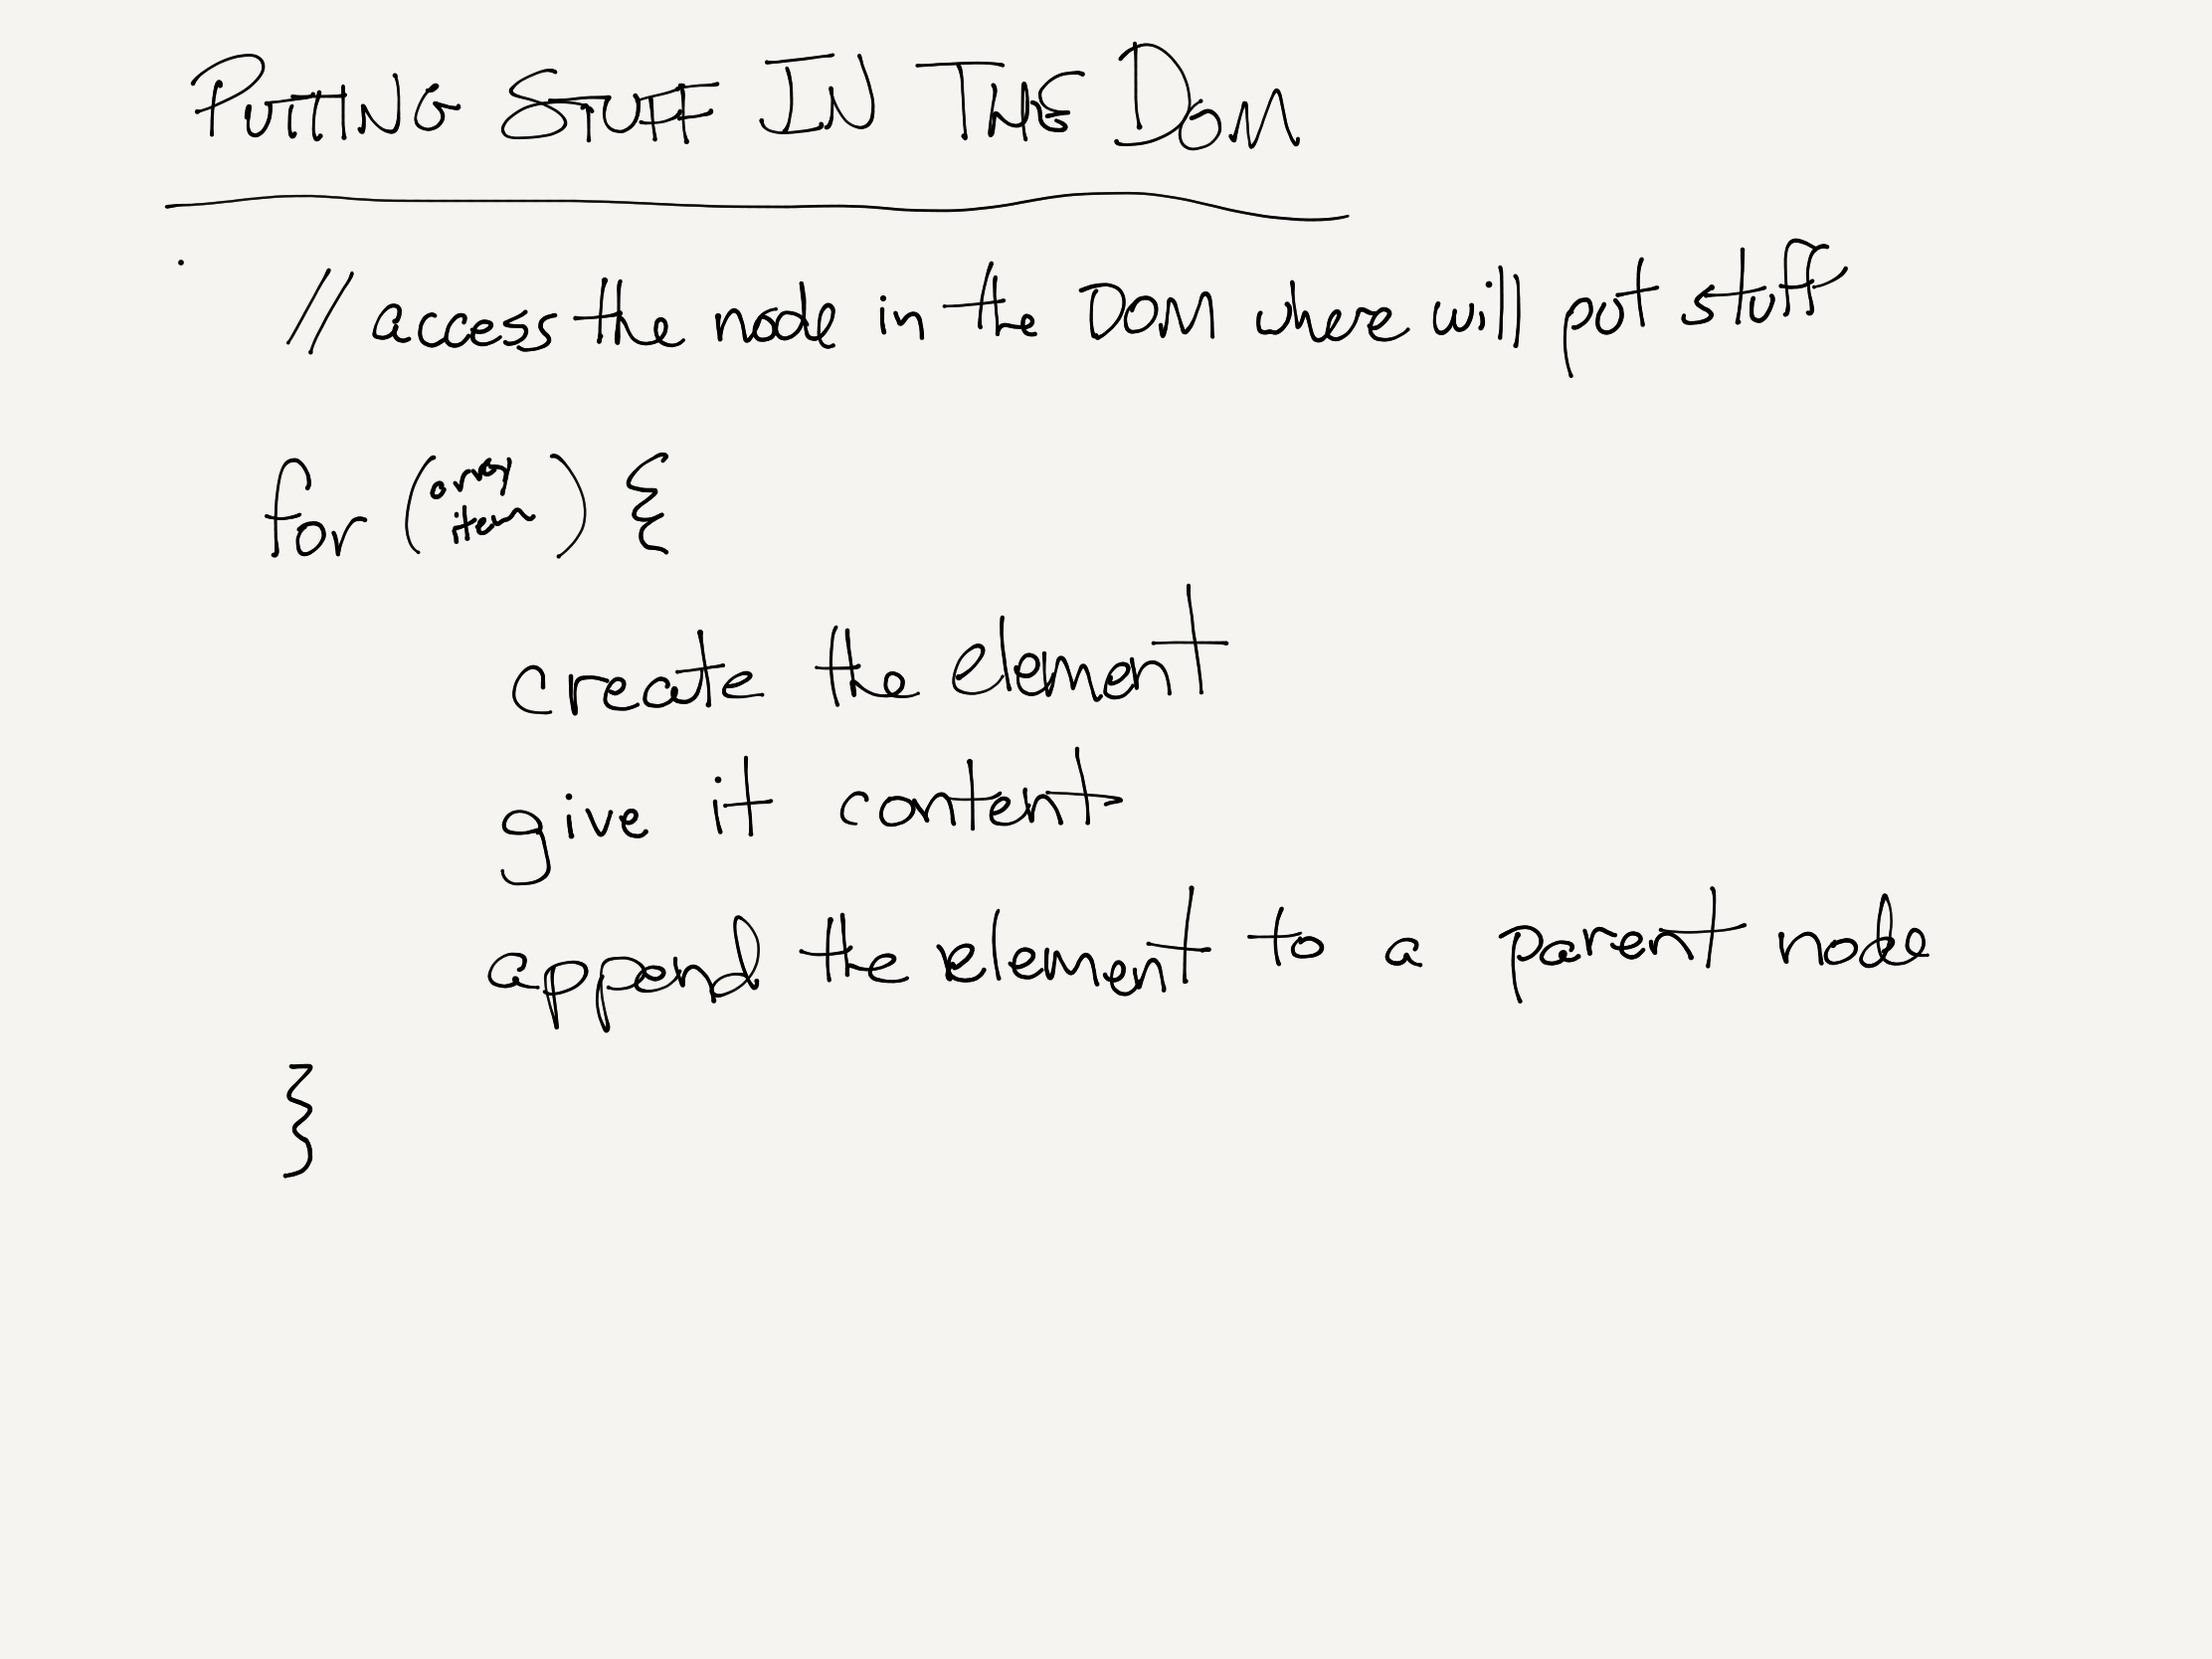 PUTTING STUFF IN THE DOM
// access the node in the DOM where will put stuff
for (array item) {
create the element
give it content
append the element to a parent node
}